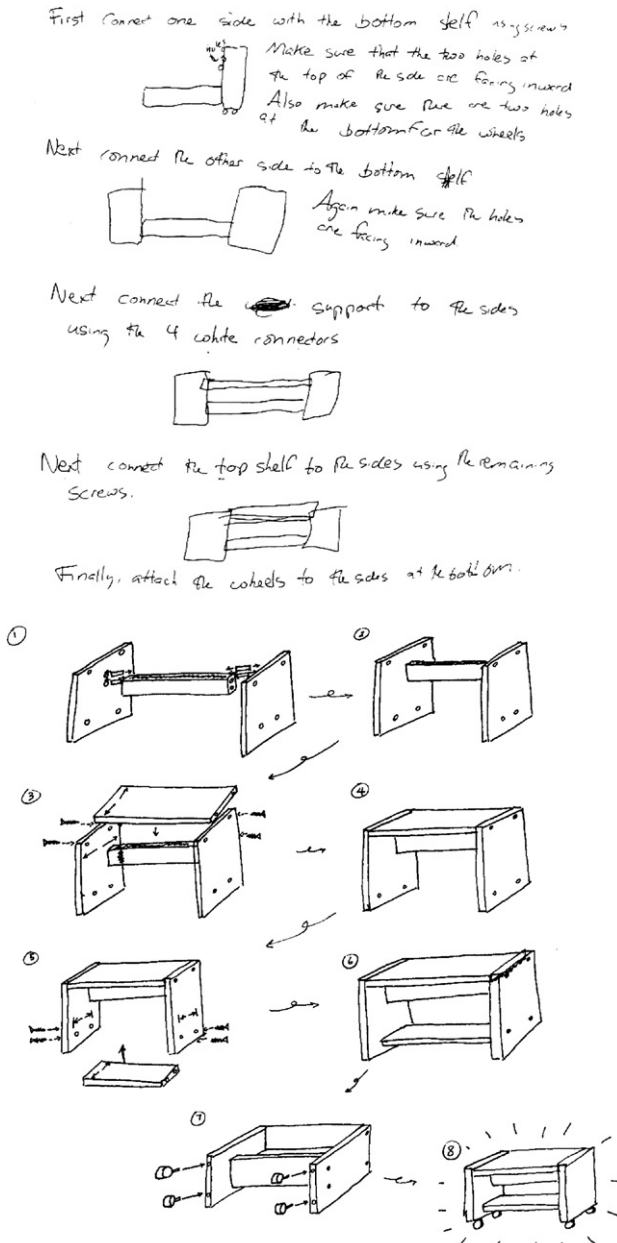 First connect one side with the bottom shelf using screws
holes
Make sure that the two holes at
the top of the side are facing inward
Also make sure there are two holes
at the bottom for the wheels
Next connect the other side to the bottom shelf
Again make sure the holes
are facing inward
Next connect the support to the sides
using the 4 white connectors
Next connect the top shelf to the sides using the remaining
screws.
Finally, attach the wheels to the sides at the bottom.
1
2
3
4
5
6
7
8